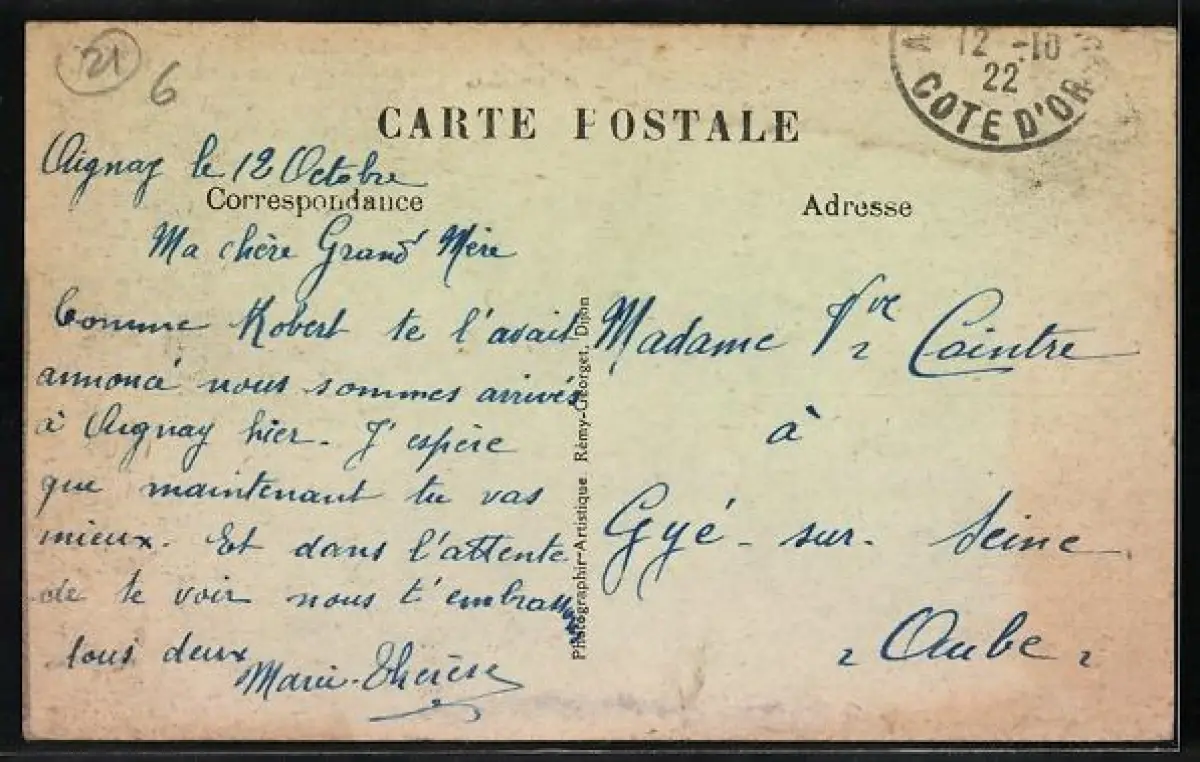 21
6
A 12 -10
22
COTE D'OR
CARTE POSTALE
Aignay le 12 Octobre
Correspondance
Ma chère Grand' Mère
Comme Robert te l'avait
annoncé nous sommes arrivés
à Aignay hier. J'espère
que maintenant tu vas
mieux. Et dans l'attente
de te voir nous t'embrassons
tous deux
Marie-Thérèse
Photographie-Artistique Rémy-Georget, Dijon
Adresse
Madame Vve Cointre
à
Gyé-sur-Seine
Aube